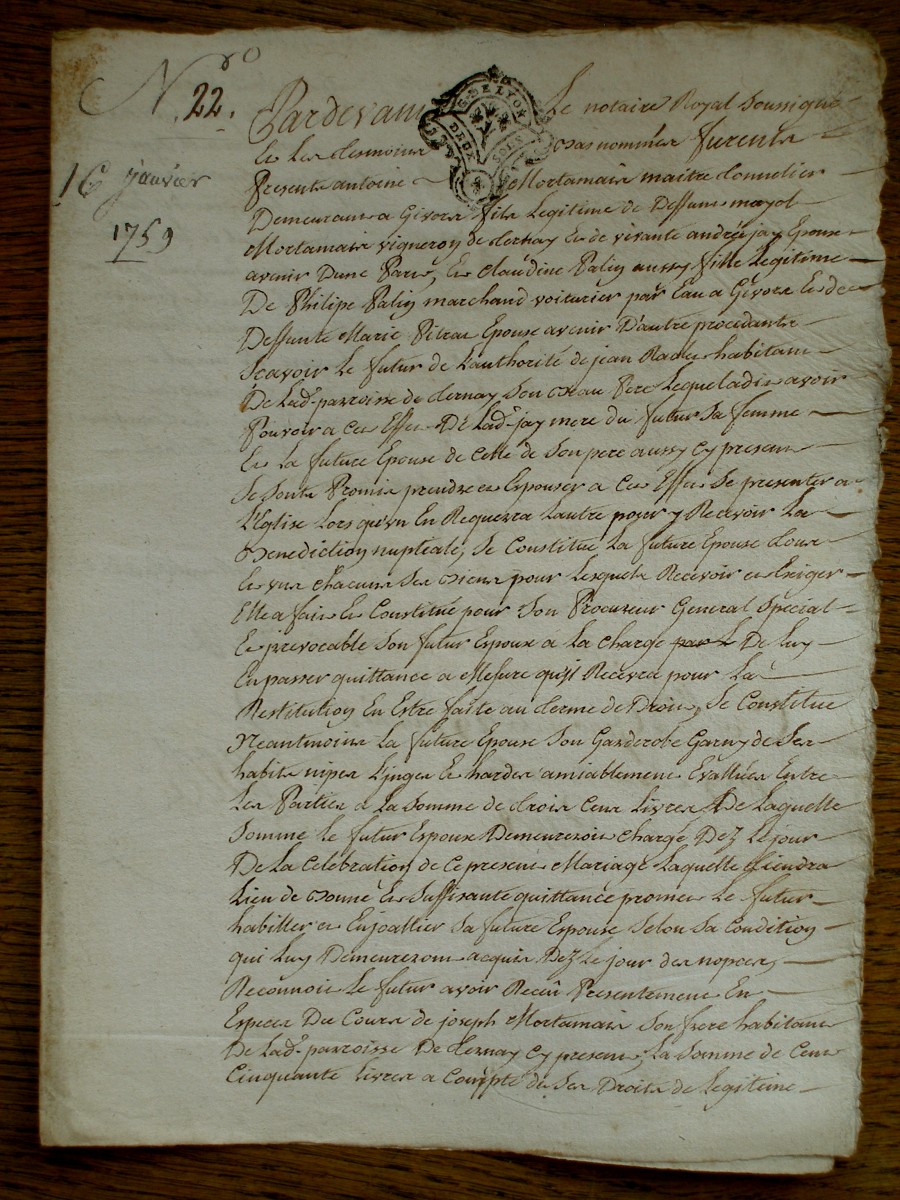 N.ro 22.
16 janvier
1759
G. DE LYON
DEUX SOLS
Pardevant Le notaire Royal Soussigné
Et Les temoins bas nommés furents
Presents antoine Mortamais maitre tonnelier
Demeurant a Givors fils Legitime de Deffunt mayol
Mortamais vigneron de ternay et de vivante andrée jay Epoux
avenir Dune Part, Et Claudine Palin aussy fille Legitime
De Philipe Palin marchand voiturier par Eau a Givors Et de
Deffunte Marie Pitras Epouse avenir D'autre procedants
Scavoir Le futur de L'authorité de jean habitant
De Lad.e parroisse de ternay Son beau Pere Lequel a dit avoir
Pouvoir a cet Effet De Lad.e jay mere du futur Sa femme
Et La future Epouse de Celle de Son pere aussy Cy present
Se Sonts Promis prendre et Epouser a Cet Effet Se presenter a
L'Eglise Lorsqu'un En Requerra Lautre pour y Recevoir La
Benediction nuptialle, Se Constitue La future Epouse tous
Et uns Chacuns Ses biens pour Lesquels Recevoir et Exiger
Elle a fait Et Constitué pour Son Procureur General Special
Et jrrevocable Son futur Epoux a La Charge par Le De Luy
En passer quittance a Mesure qu'jl Recevra pour La
Restitution En Estre faite au terme de Droit, Se Constitue
Neantmoins La future Epouse Son Garderobe Garny de Ses
habits nipes Linges Et hardes amiablement Evallués Entre
Les Parties a La Somme de trois Cent Livres De Laquelle
Somme Le futur Espoux Demeurera Chargé Dez Le jour
De La Celebration de Ce present Mariage Laquelle tiendra
Lieu de bonne Et Suffisante quittance promet Le futur
habiller et Enjoallier Sa future Epouse Selon Sa Condition
qui Luy Demeureront acquis Dez Le jour des nopces,
Reconnoit Le futur avoir Receû Presentement En
Especes Du Cours de joseph Mortamais Son frere habitant
De Lad.e parroisse De ternay Cy present, La Somme de Cent
Cinquante Livres a Compte de Ses Droits de Legitime